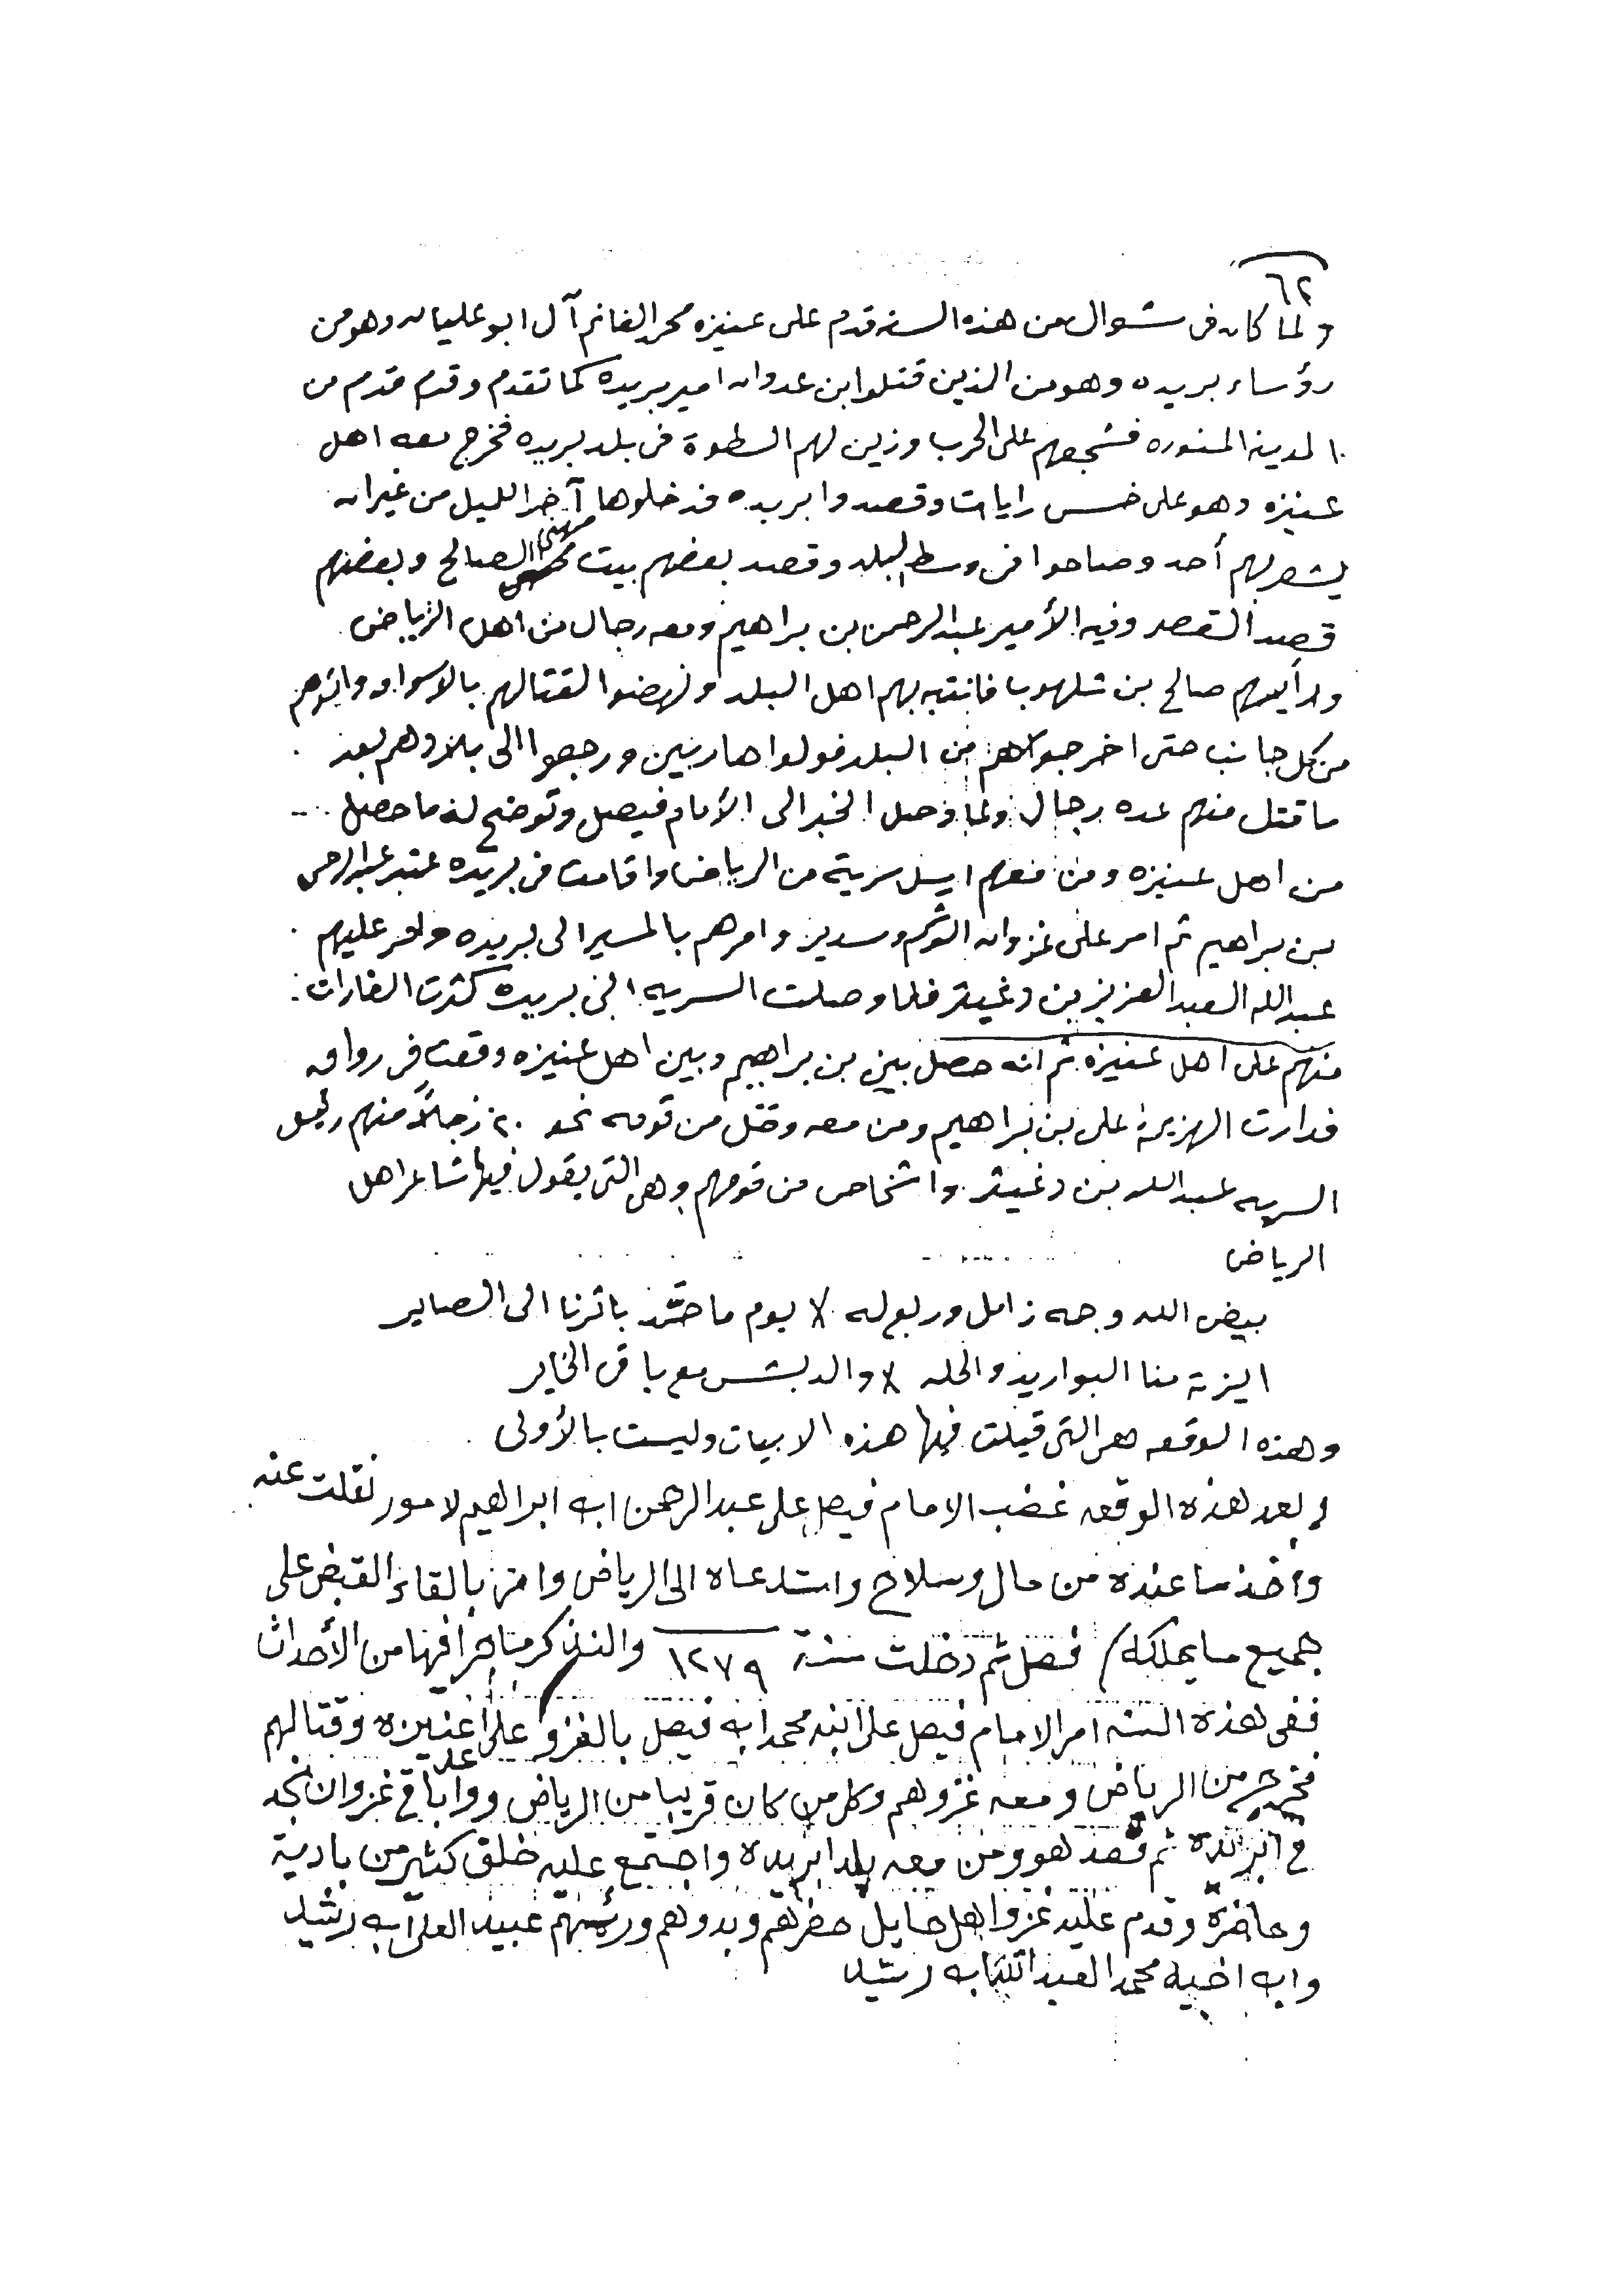 ٦٢
ولما كان في شوال من هذه السنه قدم على عنيزه محمد الغانم آل ابو عليان وهو من
رؤساء بريده وهو من الذين قتلوا ابن عدوان امير بريده كما تقدم وقدم قدم من
المدينة المنوره فشجعهم على الحرب وزين لهم السطوة في بلد بريده فخرج معه اهل
عنيزه وهو على خمس رايات وقصدوا بريده فدخلوها آخر الليل من غير ان
يشعر بهم أحد وصاحوا في وسط البلد وقصد بعضهم بيت مهنا الصالح وبعضهم
قصد القصر وفيه الأمير عبدالرحمن بن براهيم ومعه رجال من اهل الرياض
صالح بن شلهوب فانتبه بهم اهل البلد ونهضوا لقتالهم بالاسواق
من كل جانب حتى اخرجوهم من البلد فولوا هاربين ورجعوا الى بلادهم بعد
ما قتل منهم عده رجال ولما وصل الخبر الى الأمام فيصل وتوضح له ما حصل
من اهل عنيزه ومن معهم ارسل سرية من الرياض واقامت في بريده عند عبدالرحمن
بن براهيم ثم امر على غزوان الوشم وسدير وامرهم بالمسير الى بريده وامر عليهم
عبدالله العبدالعزيز بن دغيثر فلما وصلت السريه الى بريده كثرت الغارات
منهم على اهل عنيزه ثم انه حصل بين بن براهيم وبين اهل عنيزه وقعت في رواق
فدارت الهزيمة على بن براهيم ومن معه وقتل من قومه نحو ٢٠ رجلاً منهم رئيس
السريه عبدالله بن دغيثر واشخاص من قومهم وهي التي يقول فيها شاعر اهل
الرياض
بيض الله وجه زامل وربوله لا يوم ما حشّد باثرنا الى الصاير
البواريد والحله لا والدبش مع باقي الخاير
وهذه الوقعه هي التي قيلت فيها هذه الابيات وليست بالأولى
وبعد هذه الوقعه غضب الامام فيصل على عبدالرحمن ابن ابراهيم لامور نقلت عنه
واخذ ما عنده من مال وسلاح واستدعاه الى الرياض وامر بالقاء القبض على
جميع ما يملكه / فصل ثم دخلت سنة ١٢٧٩ والنذكر ما جرا فيها من الأحداث
ففي هذه السنه امر الامام فيصل على ابنه محمد ابن فيصل بالغزو على اعنيزه وقتالهم
فخرج من الرياض ومعه غزوهم وكل من كان قريبا من الرياض وواعد باقي غزوان نجد
في ابريده ثم قصد هو ومن معه بلد ابريده واجتمع عليه خلق كثير من بادية
وحاضرة وقدم عليه غزوا اهل حايل حضرهم وبدوهم ورئيسهم عبيد العلي ابن رشيد
وابن اخيه محمد العبدالله ابن رشيد